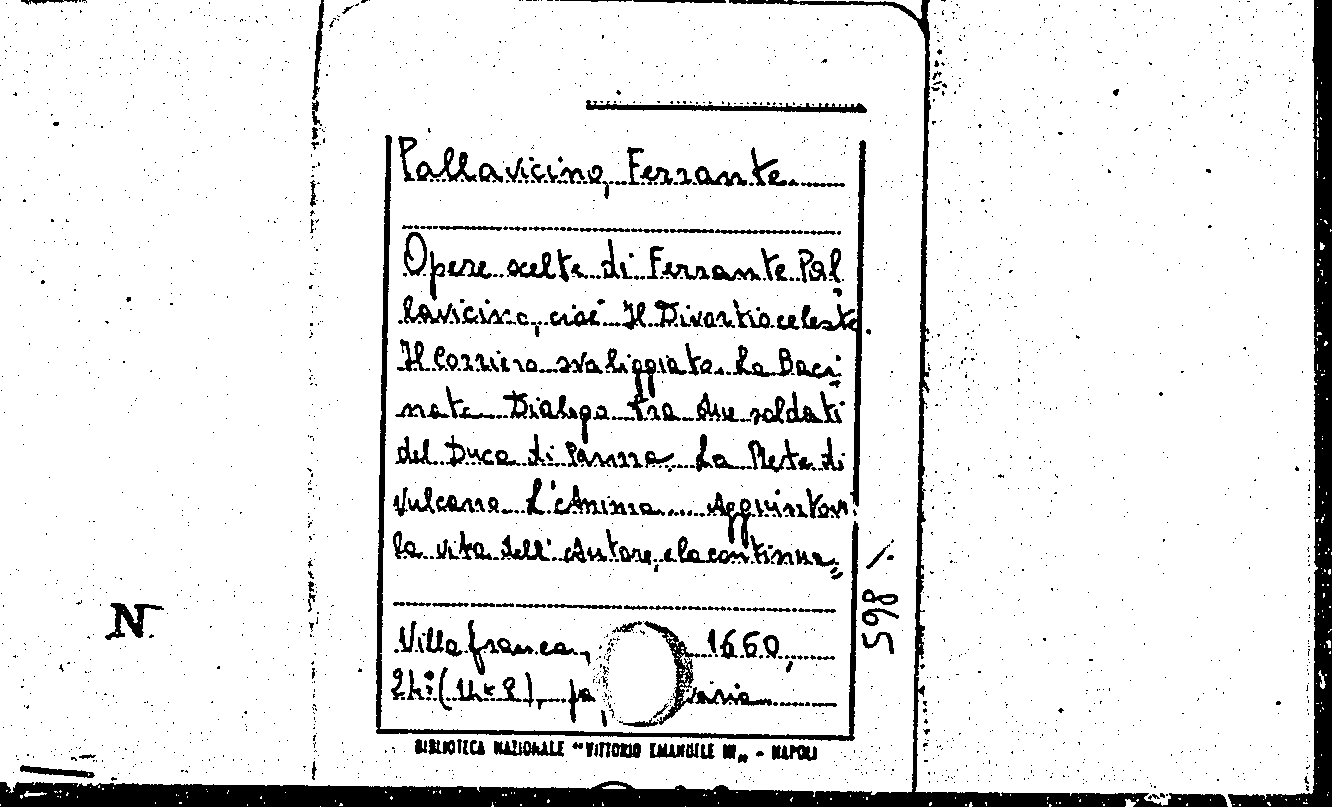 Pallavicino, Ferrante.
Opere scelte di Ferrante Pal
lavicino, cioé Il Divortio celeste.
Il Corriero svaliggiato. La Baci
nata Dialogo tra due soldati
del Duca di Parma. La Rete di
Vulcano. L'Anima. Aggiuntovi
la vita dell'Autore, e la continua=
598 /.
N
Villafranca, 1660,
24:
BIBLIOTECA NAZIONALE "VITTORIO EMANUELE III„ - NAPOLI